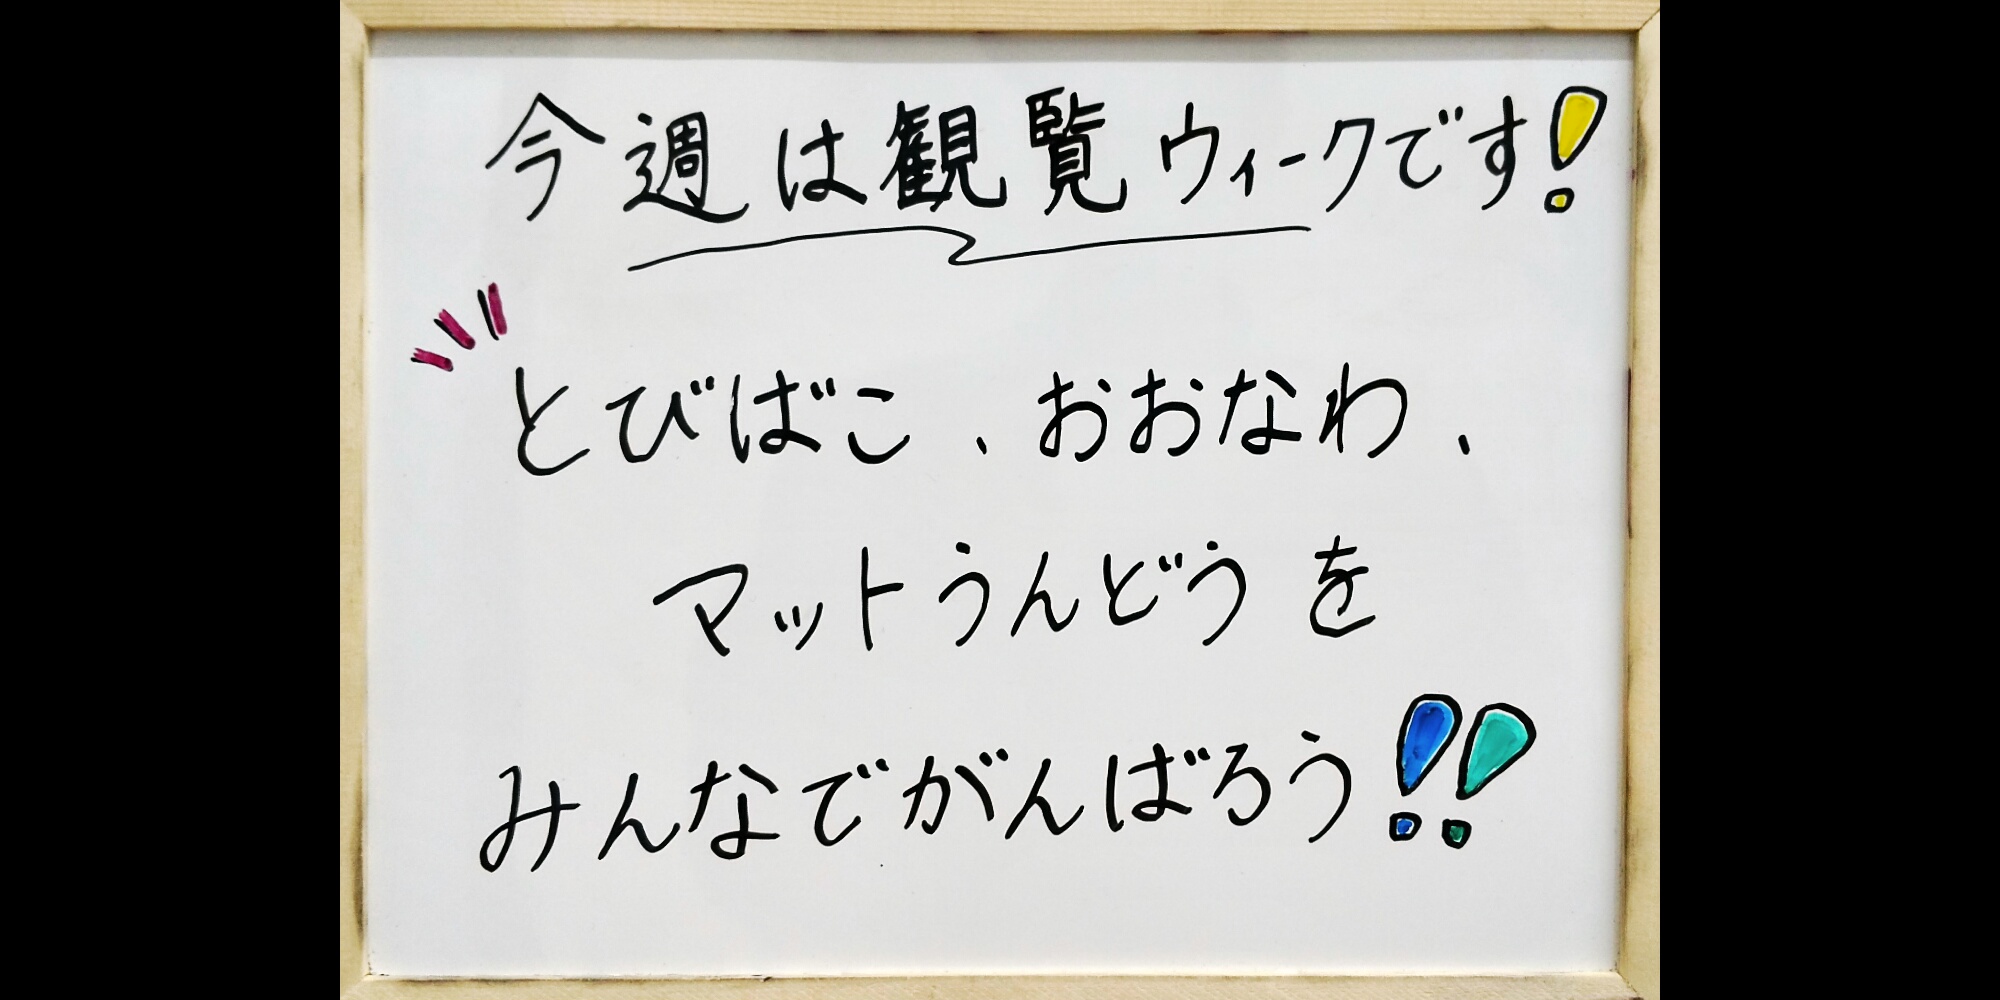 今週は観覧ウィークです!
とびばこ、おおなわ、
マットうんどうを
みんなでがんばろう!!